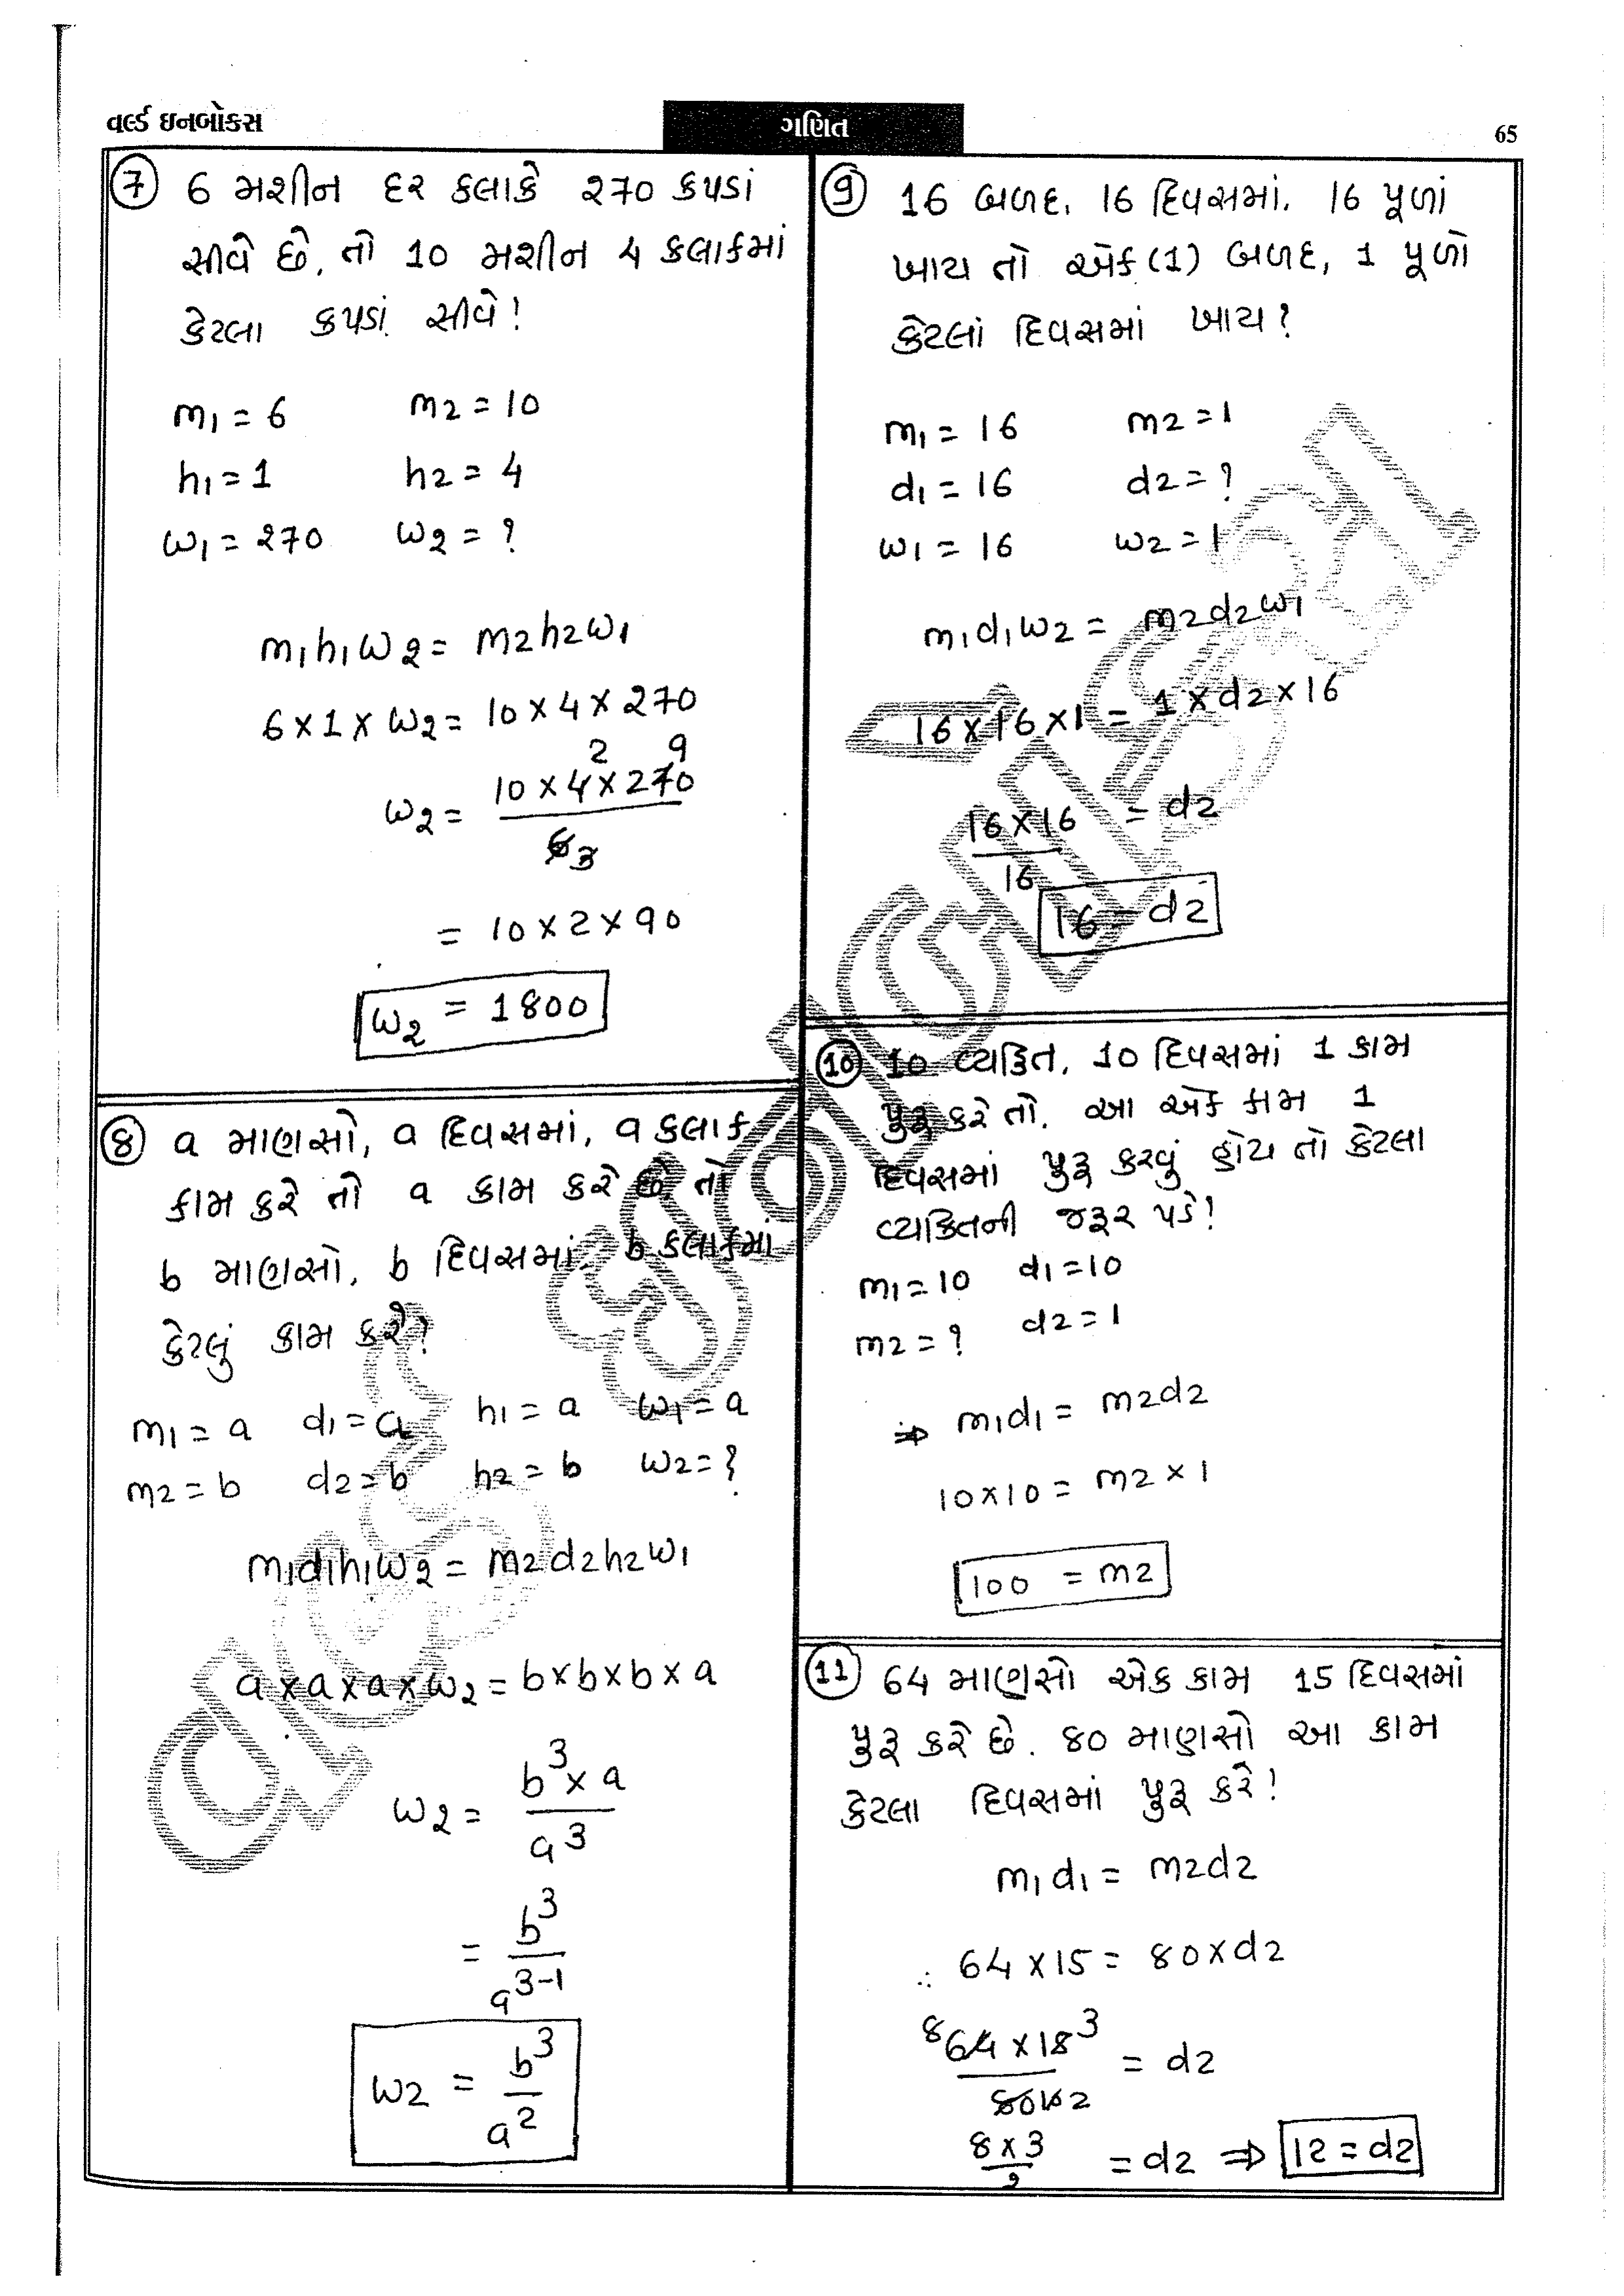 વર્લ્ડ ઇનબોકસ
ગણિત
65
7 6 મશીન દર કલાકે 270 કપડાં
સીવે છે, તો 10 મશીન 4 કલાકમાં
કેટલા કપડાં સીવે!
m1 = 6 m2 = 10
h1 = 1 h2 = 4
w1 = 270 w2 = ?
m1h1w2 = m2h2w1
6 x 1 x w2 = 10 x 4 x 270
2 9
w2 = 10 x 4 x 270
6 3
= 10 x 2 x 90
w2 = 1800
8 a માણસો, a દિવસમાં, a કલાક
કામ કરે તો a કામ કરે છે તો
b માણસો, b દિવસમાં, b કલાકમાં
કેટલું કામ કરે?
m1 = a d1 = a h1 = a w1 = a
m2 = b d2 = b h2 = b w2 = ?
m1d1h1w2 = m2d2h2w1
a x a x a x w2 = b x b x b x a
w2 = b³ x a
a³
= b³
a³⁻¹
w2 = b³
a²
9 16 બળદ, 16 દિવસમાં, 16 પૂળાં
ખાય તો એક (1) બળદ, 1 પૂળો
કેટલાં દિવસમાં ખાય?
m1 = 16 m2 = 1
d1 = 16 d2 = ?
w1 = 16 w2 = 1
m1d1w2 = m2d2w1
16 x 16 x 1 = 1 x d2 x 16
16 x 16 = d2
16
16 = d2
10 10 વ્યકિત, 10 દિવસમાં 1 કામ
પુરૂ કરે તો. આ એક કામ 1
દિવસમાં પુરૂ કરવું હોય તો કેટલા
વ્યકિતની જરૂર પડે!
m1 = 10 d1 = 10
m2 = ? d2 = 1
⇒ m1d1 = m2d2
10 x 10 = m2 x 1
100 = m2
11 64 માણસો એક કામ 15 દિવસમાં
પુરૂ કરે છે. 80 માણસો આ કામ
કેટલા દિવસમાં પુરૂ કરે!
m1d1 = m2d2
∴ 64 x 15 = 80 x d2
8 64 x 15 3 = d2
80 10 2
8 x 3 = d2 ⇒ 12 = d2
2